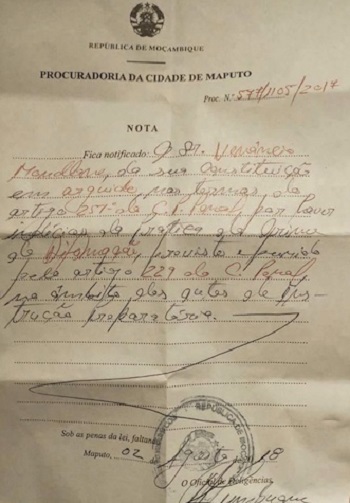 REPÚBLICA DE MOÇAMBIQUE
PROCURADORIA DA CIDADE DE MAPUTO
Proc. N.º 577/1105/2017
NOTA
Fica notificado: O Sr. Venâncio
Mondlane, da sua Constituição
em arguido, nos termos do
artigo 251º do C.P. Penal, por haver
indícios da prática do Crime
de Difamação, previsto e punido
pelo artigo 229 do C. Penal,
no âmbito dos autos de Ins-
trução preparatória.
Sob as penas da lei, faltando
Maputo, 02 de Agosto de 18
O Oficial de Diligências,